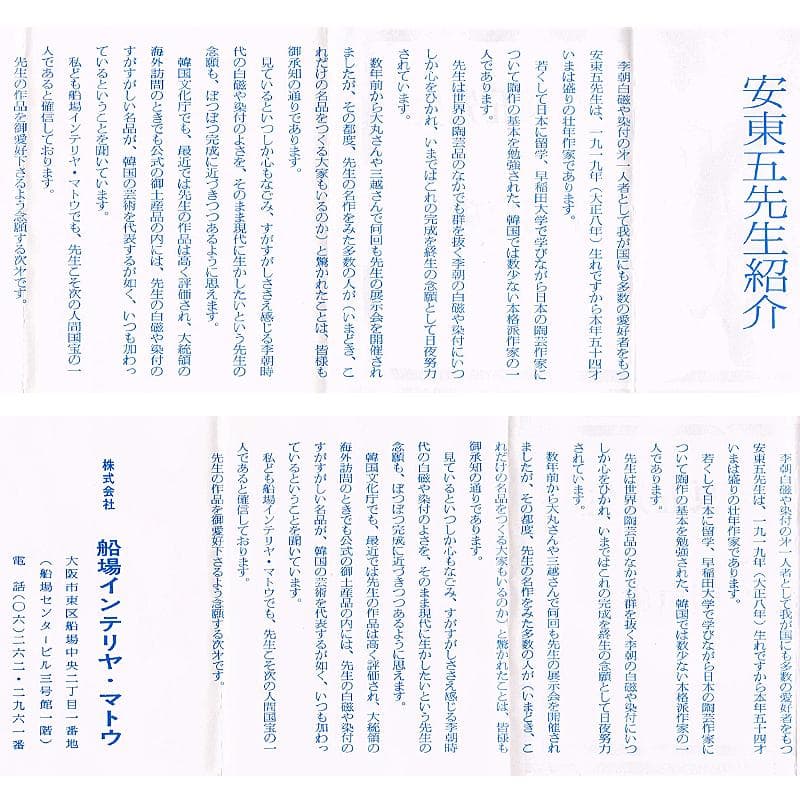 安東五先生紹介
李朝白磁や染付の才一人者として我が国にも多数の愛好者をもつ
安東五先生は、一九一九年（大正八年）生れですから本年五十四才
いまは盛りの壮年作家であります。
若くして日本に留学、早稲田大学で学びながら日本の陶芸作家に
ついて陶作の基本を勉強された、韓国では数少ない本格派作家の一
人であります。
先生は世界の陶芸品のなかでも群を抜く李朝の白磁や染付にいつ
しか心をひかれ、いまではこれの完成を終生の念願として日夜努力
されています。
数年前から大丸さんや三越さんで何回も先生の展示会を開催され
ましたが、その都度、先生の名作をみた多数の人が（いまどき、こ
れだけの名品をつくる大家もいるのか）と驚かれたことは、皆様も
御承知の通りであります。
見ているといつしか心もなごみ、すがすがしささえ感じる李朝時
代の白磁や染付のよさを、そのまま現代に生かしたいという先生の
念願も、ぼつぼつ完成に近づきつつあるように思えます。
韓国文化庁でも、最近では先生の作品は高く評価され、大統領の
海外訪問のときでも公式の御土産品の内には、先生の白磁や染付の
すがすがしい名品が、韓国の芸術を代表するが如く、いつも加わっ
ているということを聞いています。
私ども船場インテリヤ・マトウでも、先生こそ次の人間国宝の一
人であると確信しております。
先生の作品を御愛好下さるよう念願する次才です。
李朝白磁や染付の才一人者として我が国にも多数の愛好者をもつ
安東五先生は、一九一九年（大正八年）生れですから本年五十四才
いまは盛りの壮年作家であります。
若くして日本に留学、早稲田大学で学びながら日本の陶芸作家に
ついて陶作の基本を勉強された、韓国では数少ない本格派作家の一
人であります。
先生は世界の陶芸品のなかでも群を抜く李朝の白磁や染付にいつ
しか心をひかれ、いまではこれの完成を終生の念願として日夜努力
されています。
数年前から大丸さんや三越さんで何回も先生の展示会を開催され
ましたが、その都度、先生の名作をみた多数の人が（いまどき、こ
れだけの名品をつくる大家もいるのか）と驚かれたことは、皆様も
御承知の通りであります。
見ているといつしか心もなごみ、すがすがしささえ感じる李朝時
代の白磁や染付のよさを、そのまま現代に生かしたいという先生の
念願も、ぼつぼつ完成に近づきつつあるように思えます。
韓国文化庁でも、最近では先生の作品は高く評価され、大統領の
海外訪問のときでも公式の御土産品の内には、先生の白磁や染付の
すがすがしい名品が、韓国の芸術を代表するが如く、いつも加わっ
ているということを聞いています。
私ども船場インテリヤ・マトウでも、先生こそ次の人間国宝の一
人であると確信しております。
先生の作品を御愛好下さるよう念願する次才です。
株式会社 船場インテリヤ・マトウ
大阪市東区船場中央二丁目一番地
（船場センタービル三号館一階）
電話（〇六）二六二・二九六一番